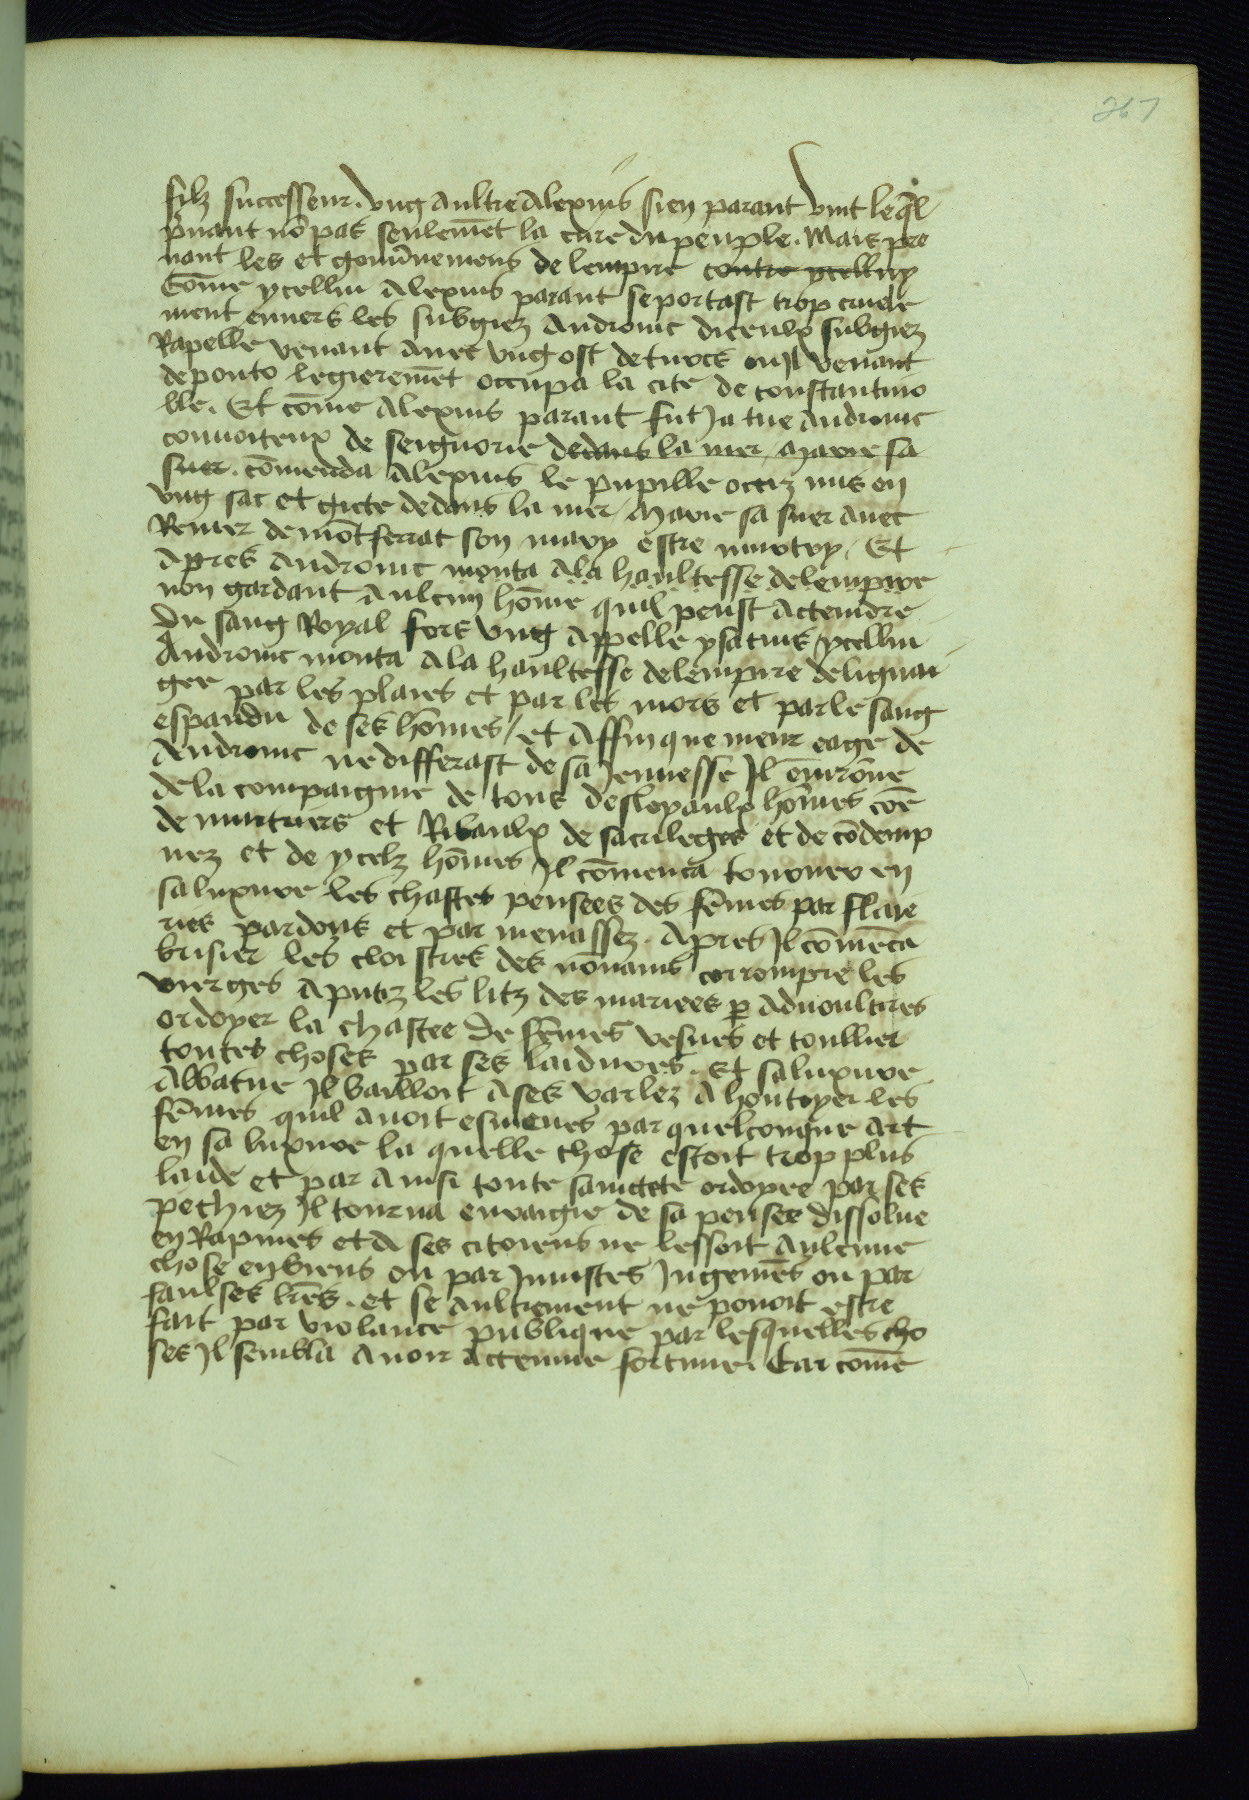 267
filz successeur. vng aultre Alexius sien parant vint leq̄l
p̄nant nō pas seulem̄et la cure du peuple. Mais pre
nant les et gouu̅nemens de lempire contre ycelluy
Cōme ycellui Alexius parant se portast trop cruele
ment enuers les subgiez Andronic diceulx subgiez
Rapelle venant auec vng ost de turcs ou Il venant
de ponto legierem̄et occupa la cite de constantino
ble. Et cōme Alexius parant fut Ja tue Andronic
conuoiteux de seignorie dedans la mer marie sa
suer. cōmenda Alexius le pupille occiz mis en
vng sac et gicte dedans la mer / marie sa suer auec
Renier de mōtferrat son mary estre murtry. Et
Apres Andronic monta ala haultesse de lempire
non gardant Aulcun hōme quil peust actendre
du sang Royal fors vng Appelle ysacius / ycellui
Andronic monta ala haultesse de lempire delignai
gee par les plaies et par les mors et par le sang
espandu de ses hōmes / et Affin que meur eage de
Andronic ne differast de sa Jennesse Il enuirōne
de la compaignie de tous desloyaulx hōmes cōe
de murtriers et Ribaulx de sacrileges et de cōdemp
nez et de ycelz hōmes Il cōmenca tourner en
sa luxure les chastes pensees des fēmes par flaie
ries par dons et par menassez. Apres Il cōmēca
brisier les cloistres des nōnains corrompre les
vierges A putez les litz des mariees p̱ aduoultires
ordoyer la chastee de fēmes vesues et toullier
toutes choses par ses laidures. Et sa luxure
Abbatue Il bailloit A ses varlez A hontoyer les
fēmes quil auoit esmeues par quelconque art
en sa luxure la quelle chose estoit trop plus
laide et par Ainsi toute sainctete ordoyee par ses
pechiez Il tourna en raige de sa pensee dissolue
en Rapines et A ses citoiens ne lessoit Aulcune
chose en biens ou par Iniustes Jugemēs ou par
faulses lr̄es. et se aultrement ne pouoit estre
fait par violance publique par lesquelles cho
ses Il sembla auoir actenue fortune. Car cōme